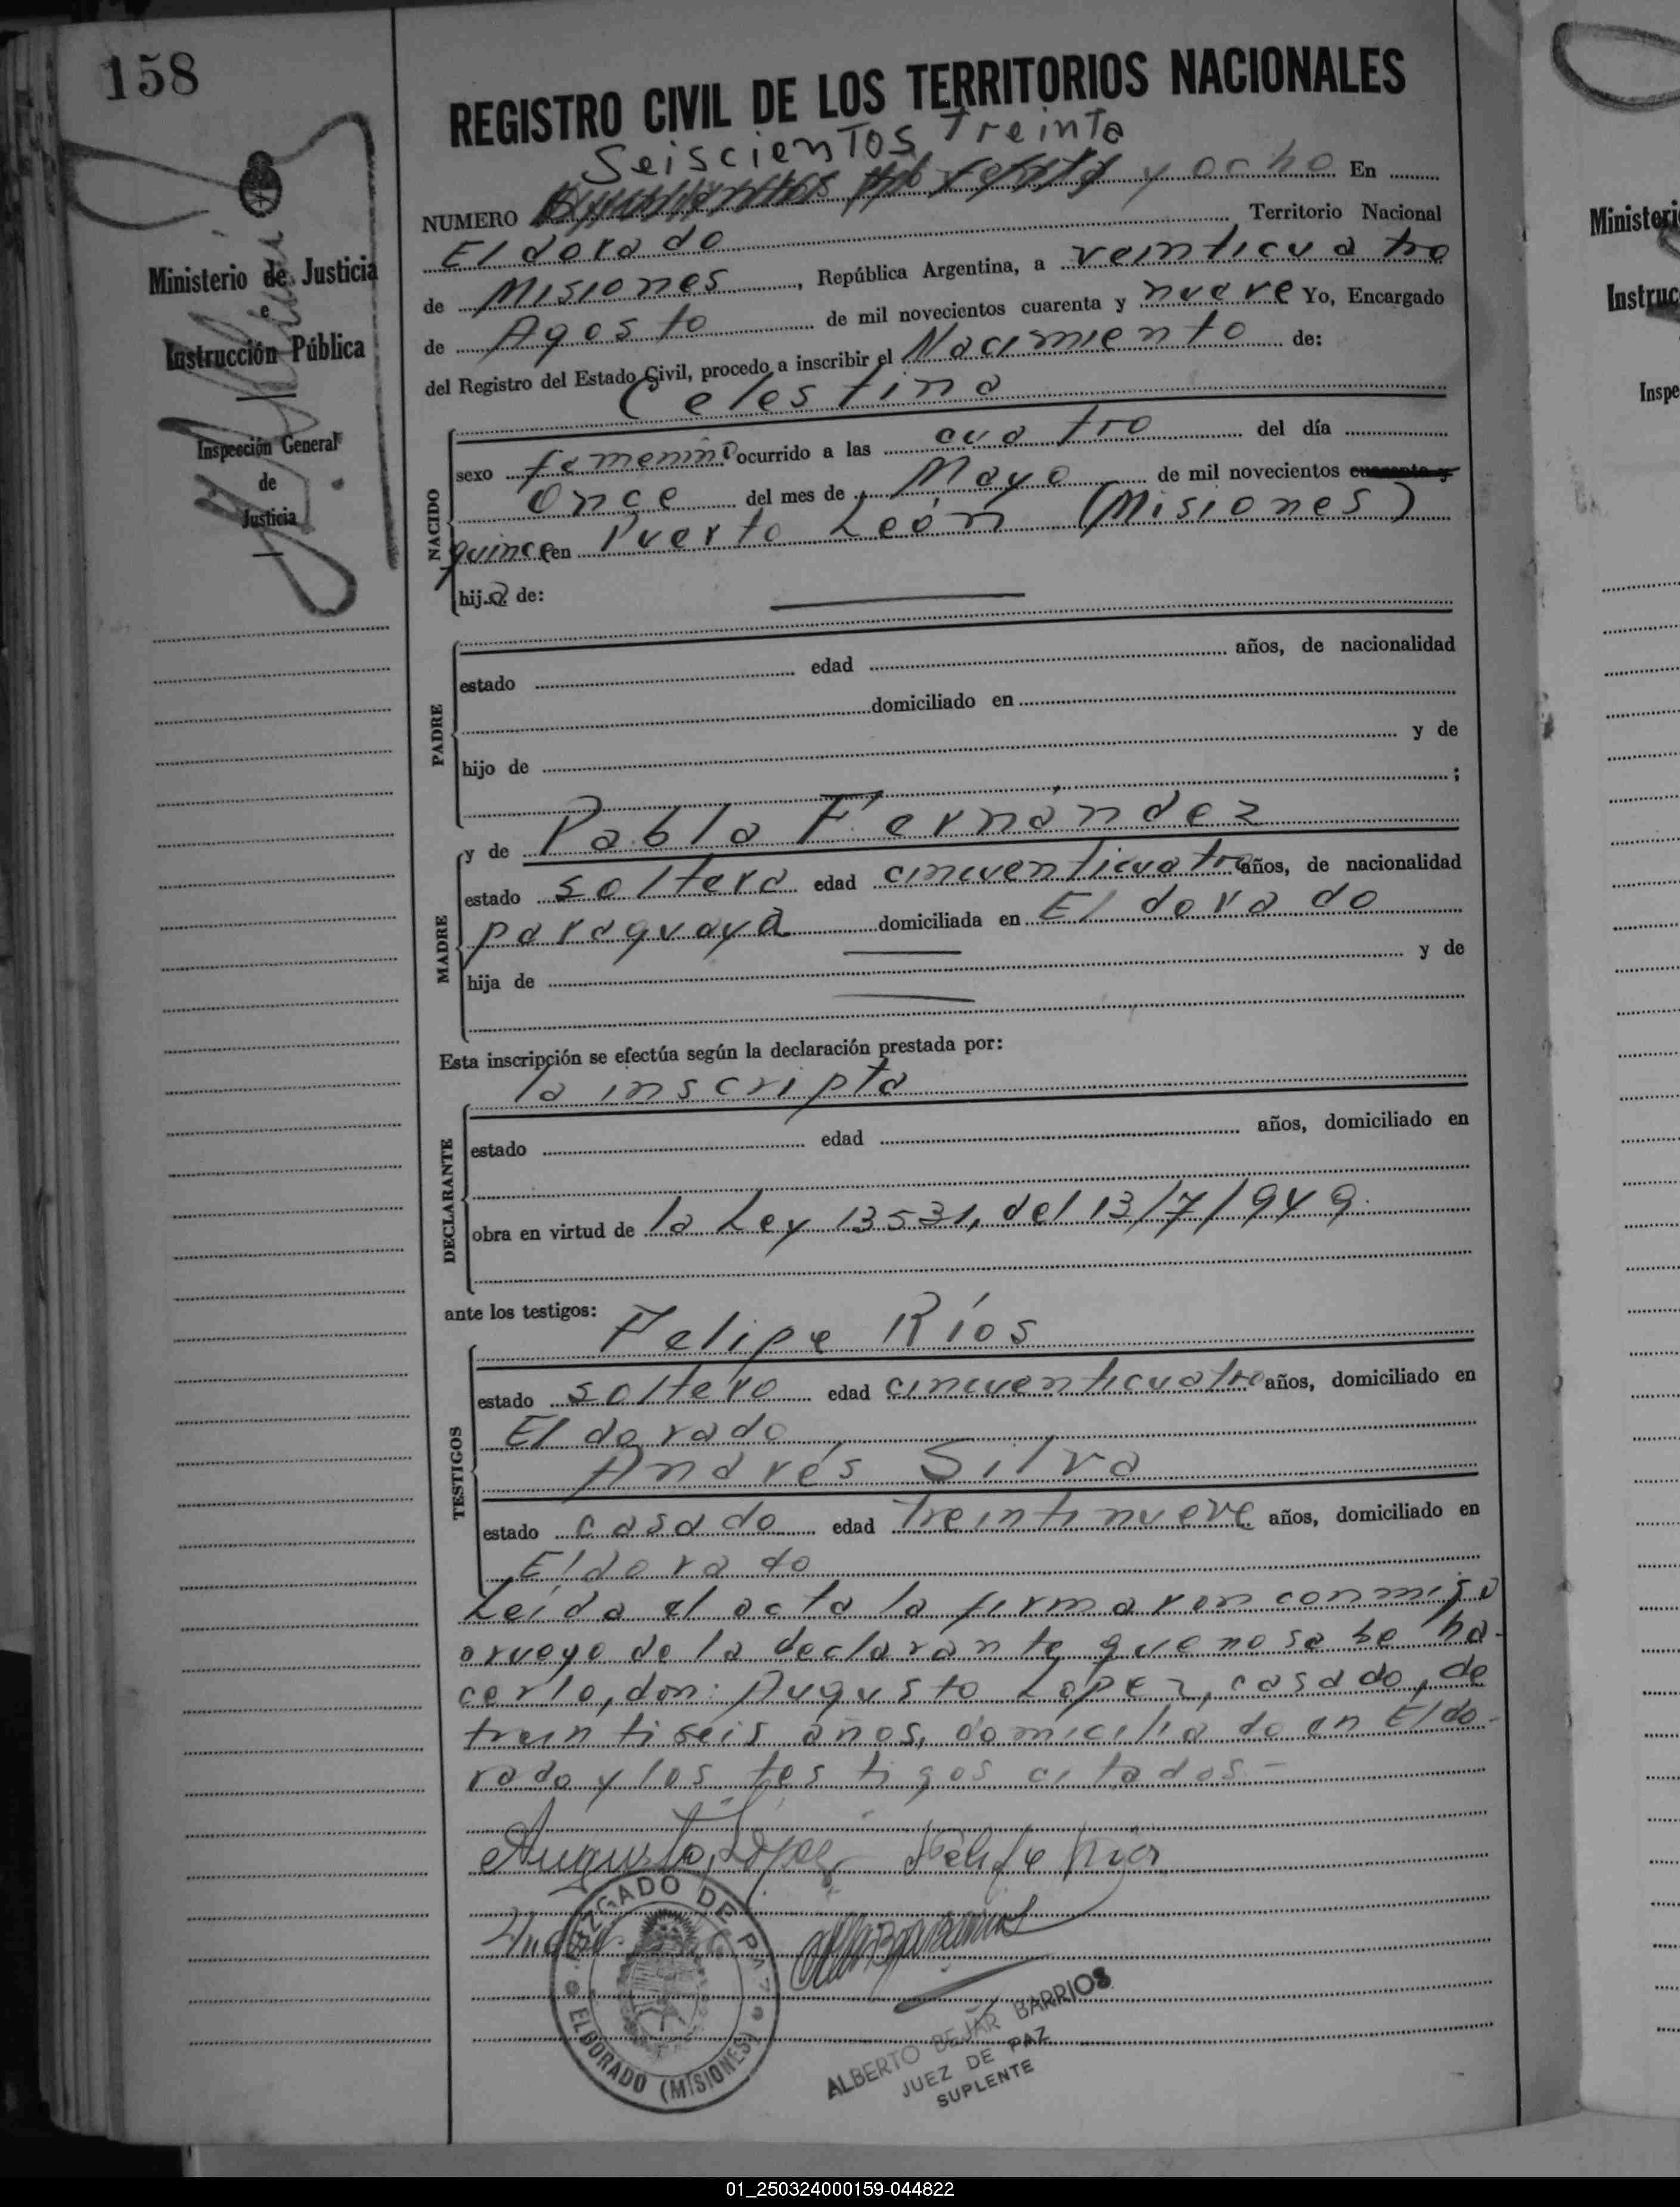 158
REGISTRO CIVIL DE LOS TERRITORIOS NACIONALES
Seiscientos treinta
NUMERO y ocho En
Eldorado Territorio Nacional
de Misiones, República Argentina, a veinticuatro
de Agosto de mil novecientos cuarenta y nueve Yo, Encargado
del Registro del Estado Civil, procedo a inscribir el Nacimiento de:
Ministerio de Justicia
e
Instrucción Pública
Inspección General
de
Justicia
Celestina
NACIDO
sexo femenino ocurrido a las cuatro del día
once del mes de Mayo de mil novecientos cuarenta y
quince en Puerto León (Misiones)
hija de:
PADRE
estado edad años, de nacionalidad
domiciliado en
hijo de y de
;
MADRE
y de Pabla Fernández
estado soltera edad cincuenticuatro años, de nacionalidad
paraguaya domiciliada en Eldorado
hija de y de
Esta inscripción se efectúa según la declaración prestada por:
la inscripta
DECLARANTE
estado edad años, domiciliado en
obra en virtud de la Ley 13531, del 13/7/949.
ante los testigos:
TESTIGOS
Felipe Ríos
estado soltero edad cincuenticuatro años, domiciliado en
Eldorado
Andrés Silva
estado casado edad treintinueve años, domiciliado en
Eldorado
Leída el acta la firmaron conmigo
a ruego de la declarante que no sabe ha-
cerlo, don: Augusto López, casado, de
treintiseis años, domiciliado en Eldo-
rado y los testigos citados-
Augusto López Felipe Rios
JUZGADO DE PAZ
ELDORADO (MISIONES)
ALBERTO BEJAR BARRIOS
JUEZ DE PAZ
SUPLENTE
Ministeri
Instruc
Inspe
01_250324000159-044822